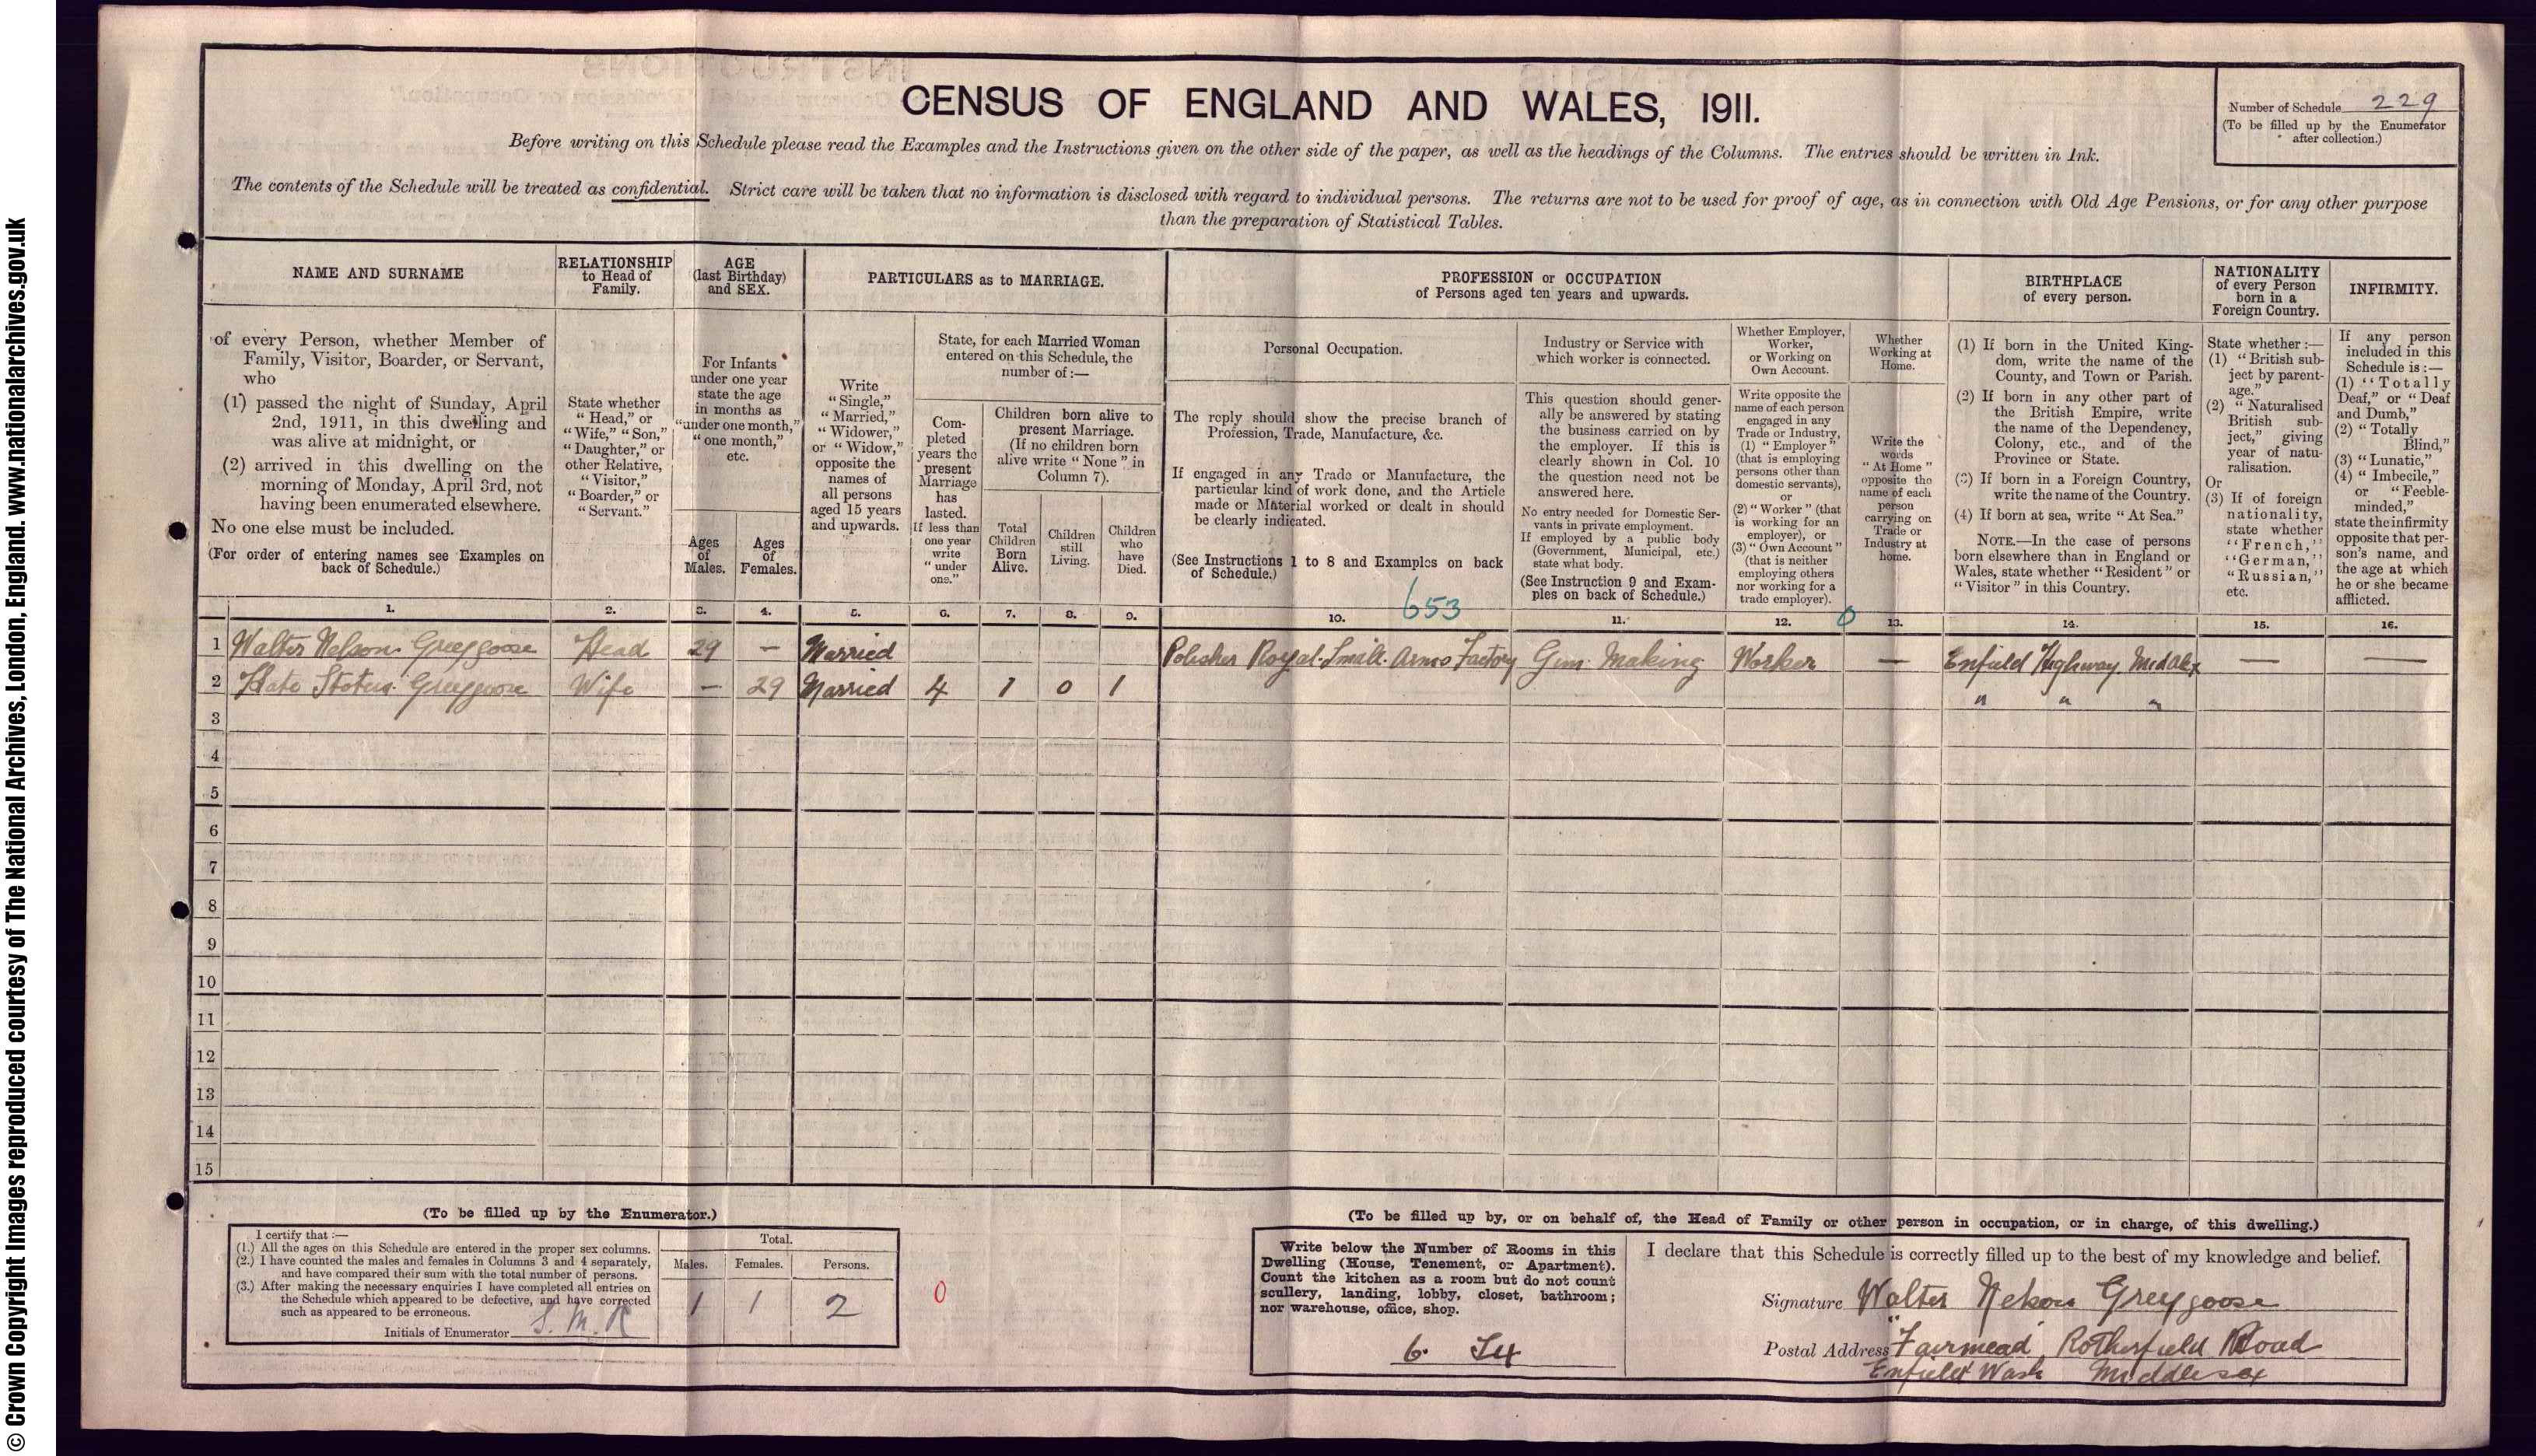 CENSUS OF ENGLAND AND WALES, 1911.
Number of Schedule 229
(To be filled up by the Enumerator
after collection.)
Before writing on this Schedule please read the Examples and the Instructions given on the other side of the paper, as well as the headings of the Columns. The entries should be written in Ink.
The contents of the Schedule will be treated as confidential. Strict care will be taken that no information is disclosed with regard to individual persons. The returns are not to be used for proof of age, as in connection with Old Age Pensions, or for any other purpose
than the preparation of Statistical Tables.
NAME AND SURNAME
of every Person, whether Member of
Family, Visitor, Boarder, or Servant,
who
(1) passed the night of Sunday, April
2nd, 1911, in this dwelling and
was alive at midnight, or
(2) arrived in this dwelling on the
morning of Monday, April 3rd, not
having been enumerated elsewhere.
No one else must be included.
(For order of entering names see Examples on
back of Schedule.)
RELATIONSHIP
to Head of
Family.
State whether
"Head," or
"Wife," "Son,"
"Daughter," or
other Relative,
"Visitor,"
"Boarder," or
"Servant."
AGE
(last Birthday)
and SEX.
For Infants
under one year
state the age
in months as
"under one month,"
"one month,"
etc.
Ages
of
Males.
Ages
of
Females.
PARTICULARS as to MARRIAGE.
Write
"Single,"
"Married,"
"Widower,"
or "Widow,"
opposite the
names of
all persons
aged 15 years
and upwards.
State, for each Married Woman
entered on this Schedule, the
number of:—
Com-
pleted
years the
present
Marriage
has
lasted.
If less than
one year
write
"under
one."
Children born alive to
present Marriage.
(If no children born
alive write "None" in
Column 7).
Total
Children
Born
Alive.
Children
still
Living.
Children
who
have
Died.
PROFESSION or OCCUPATION
of Persons aged ten years and upwards.
Personal Occupation.
The reply should show the precise branch of
Profession, Trade, Manufacture, &c.
If engaged in any Trade or Manufacture, the
particular kind of work done, and the Article
made or Material worked or dealt in should
be clearly indicated.
(See Instructions 1 to 8 and Examples on back
of Schedule.)
Industry or Service with
which worker is connected.
This question should gener-
ally be answered by stating
the business carried on by
the employer. If this is
clearly shown in Col. 10
the question need not be
answered here.
No entry needed for Domestic Ser-
vants in private employment.
If employed by a public body
(Government, Municipal, etc.)
state what body.
(See Instruction 9 and Exam-
ples on back of Schedule.)
Whether Employer,
Worker,
or Working on
Own Account.
Write opposite the
name of each person
engaged in any
Trade or Industry,
(1) "Employer"
(that is employing
persons other than
domestic servants),
or
(2) "Worker" (that
is working for an
employer), or
(3) "Own Account"
(that is neither
employing others
nor working for a
trade employer).
Whether
Working at
Home.
Write the
words
"At Home"
opposite the
name of each
person
carrying on
Trade or
Industry at
home.
BIRTHPLACE
of every person.
(1) If born in the United King-
dom, write the name of the
County, and Town or Parish.
(2) If born in any other part of
the British Empire, write
the name of the Dependency,
Colony, etc., and of the
Province or State.
(3) If born in a Foreign Country,
write the name of the Country.
(4) If born at sea, write "At Sea."
NOTE.—In the case of persons
born elsewhere than in England or
Wales, state whether "Resident" or
"Visitor" in this Country.
NATIONALITY
of every Person
born in a
Foreign Country.
State whether:—
(1) "British sub-
ject by parent-
age."
(2) "Naturalised
British sub-
ject," giving
year of natu-
ralisation.
Or
(3) If of foreign
nationality,
state whether
"French,"
"German,"
"Russian,"
etc.
INFIRMITY.
If any person
included in this
Schedule is:—
(1) "Totally
Deaf," or "Deaf
and Dumb,"
(2) "Totally
Blind,"
(3) "Lunatic,"
(4) "Imbecile,"
or "Feeble-
minded,"
state the infirmity
opposite that per-
son's name, and
the age at which
he or she became
afflicted.
1. 2. 3. 4. 5. 6. 7. 8. 9. 10. 653 11. 12. 0 13. 14. 15. 16.
1 Walter Nelson Greygoose Head 29 — Married Polisher Royal Small Arms Factory Gun Making Worker — Enfield Highway Middlx — —
2 Kate Greygoose Wife — 29 Married 4 1 0 1 " " "
3
4
5
6
7
8
9
10
11
12
13
14
15
(To be filled up by the Enumerator.)
I certify that:—
(1.) All the ages on this Schedule are entered in the proper sex columns.
(2.) I have counted the males and females in Columns 3 and 4 separately,
and have compared their sum with the total number of persons.
(3.) After making the necessary enquiries I have completed all entries on
the Schedule which appeared to be defective, and have corrected
such as appeared to be erroneous.
Initials of Enumerator S. M. R
Total.
Males. Females. Persons.
1 1 2
0
(To be filled up by, or on behalf of, the Head of Family or other person in occupation, or in charge, of this dwelling.)
Write below the Number of Rooms in this
Dwelling (House, Tenement, or Apartment).
Count the kitchen as a room but do not count
scullery, landing, lobby, closet, bathroom;
nor warehouse, office, shop.
6.
I declare that this Schedule is correctly filled up to the best of my knowledge and belief.
Signature Walter Nelson Greygoose
Postal Address "Fairmead" Rotherfield Road
Enfield Wash Middlesex
© Crown Copyright Images reproduced courtesy of The National Archives, London, England. www.nationalarchives.gov.uk